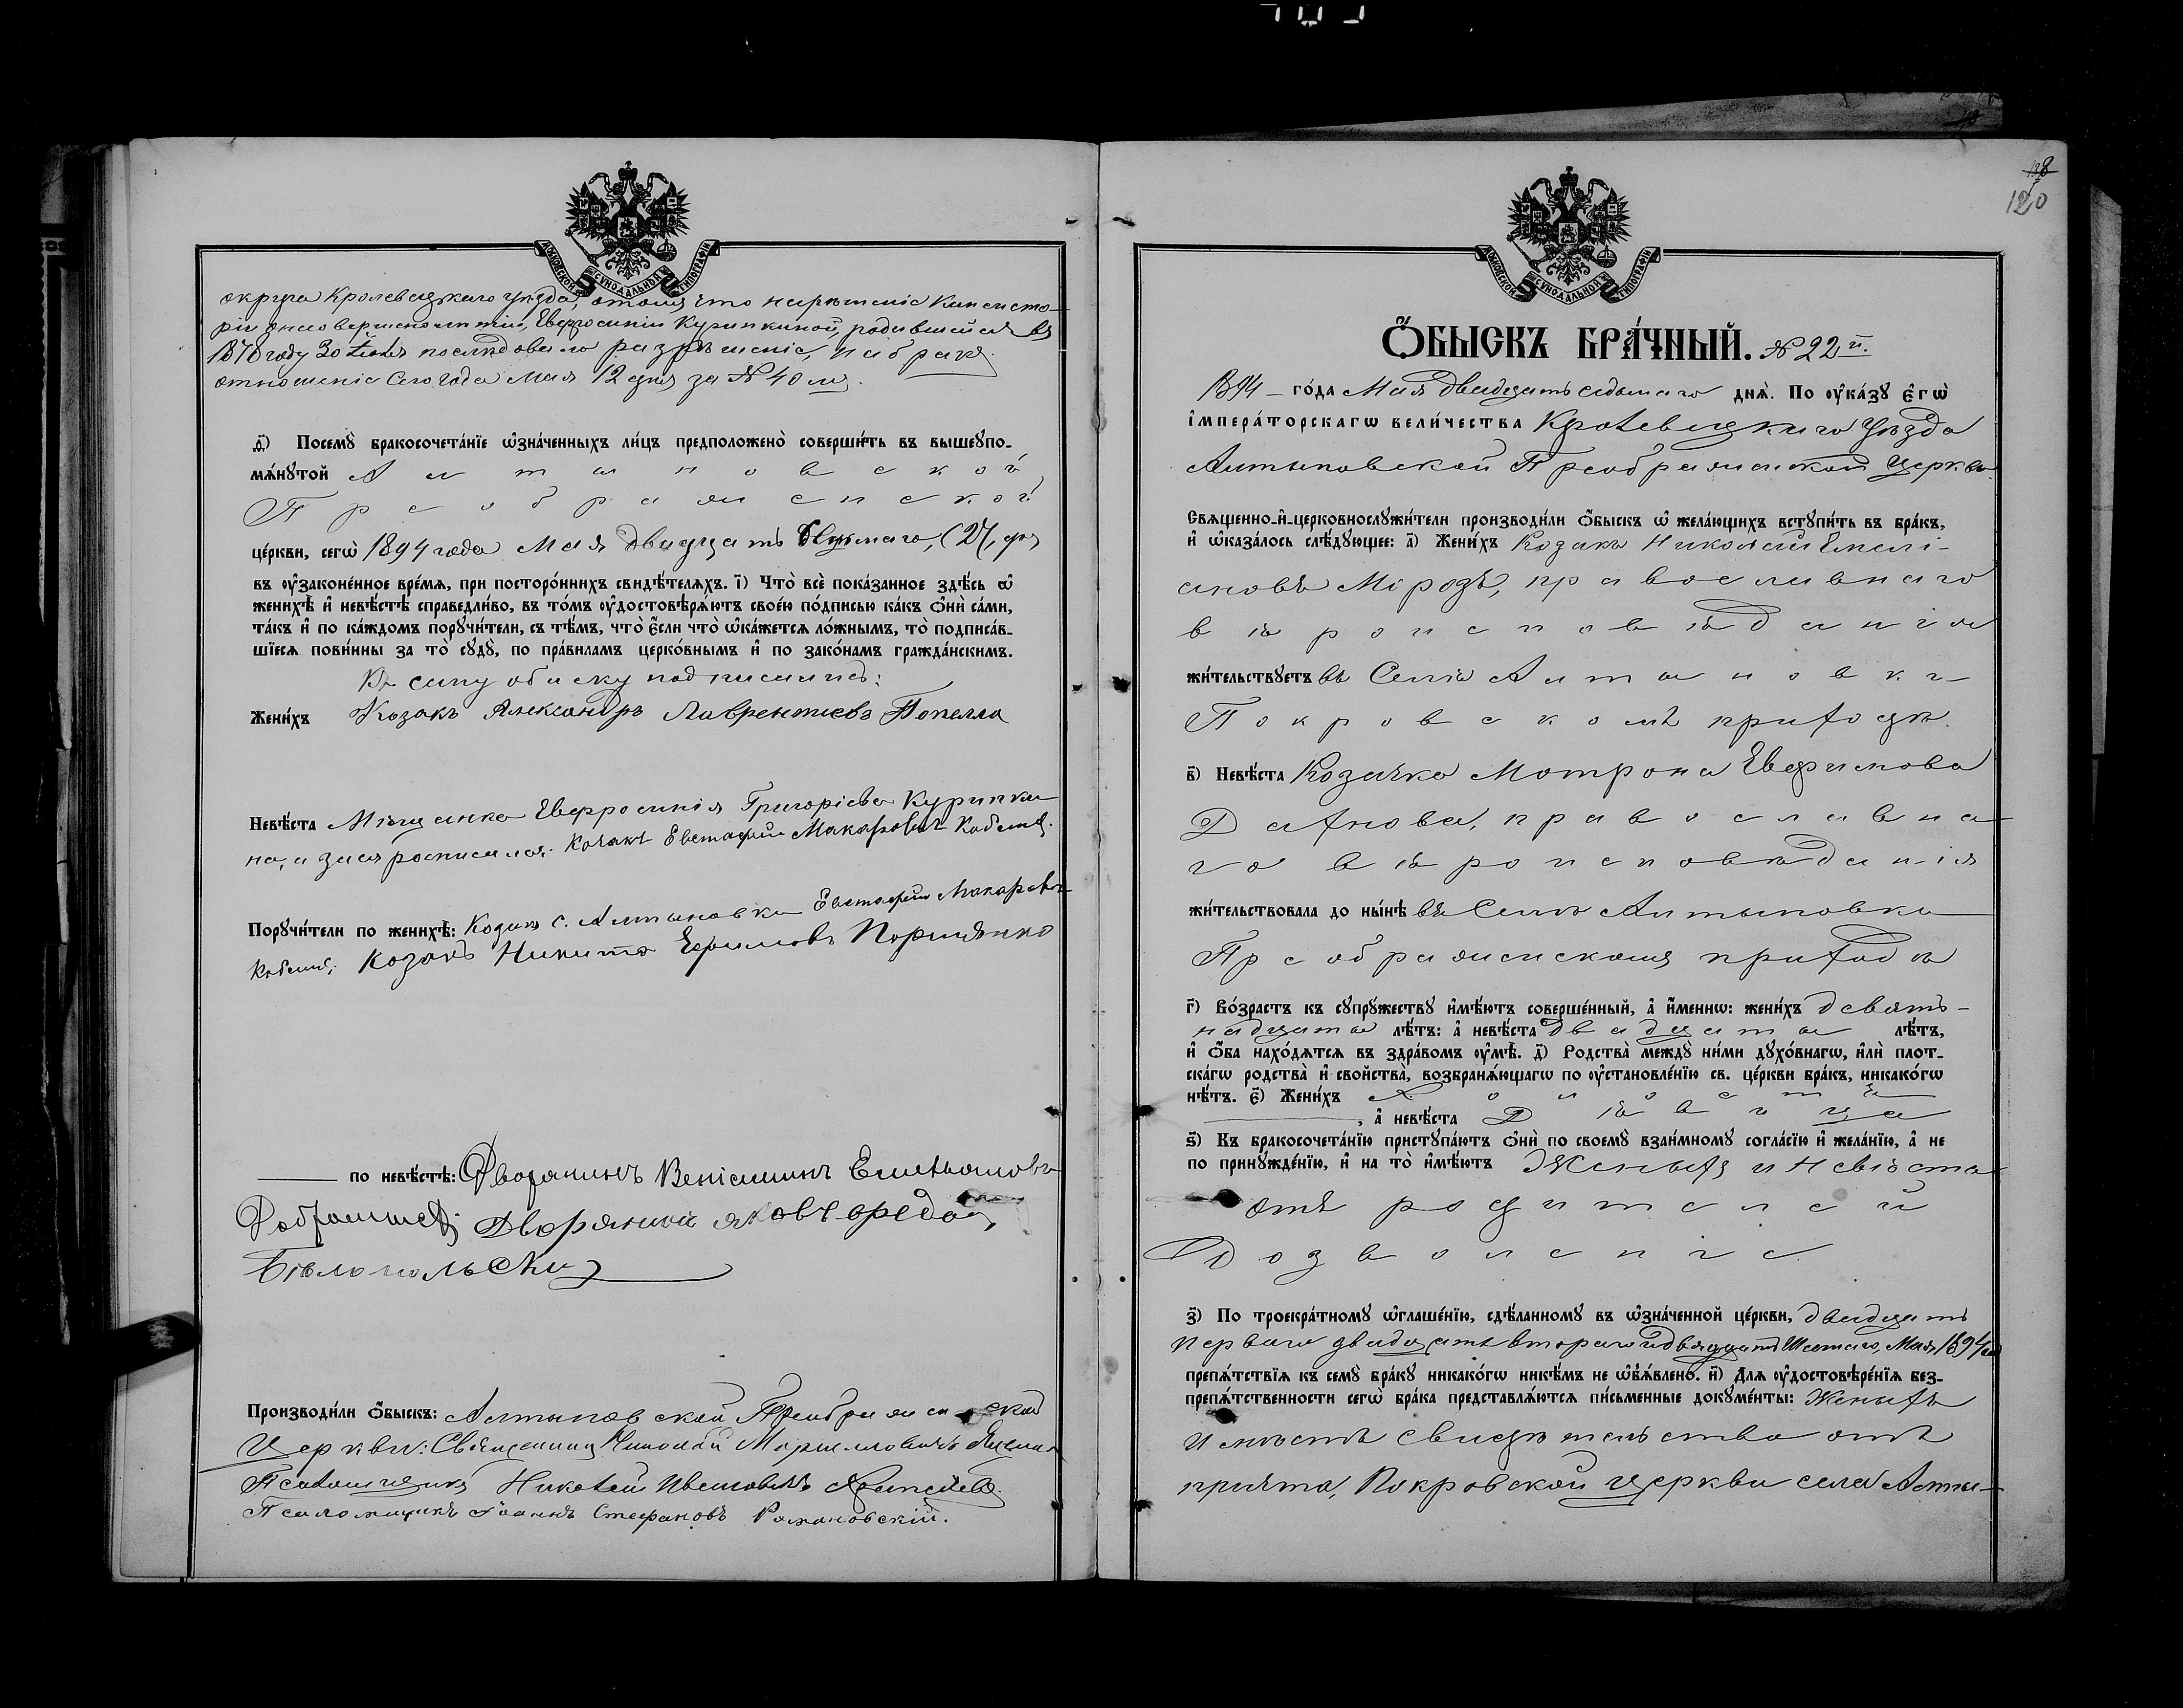 МОСКОВСКОЙ СѴНОДАЛЬНОЙ ТИПОГРАФІИ
округа Кролевецкаго уѣзда, отомъ что нарѣшеніе Консисто-
ріи Евфросиніи Курипкиной, родившейся въ
1878 году 30 Іюня послѣдовало разрѣшеніе, на бракъ.
отношеніе Сего года Мая 12 дня за № 40 мъ.
ѳ҃) Посемꙋ̀ бракосочета́нїе ѡ҆зна́ченныхъ ли́цъ предположено̀ соверши́ть въ вышеꙋпо-
мѧ́нꙋтой Алтыновской
Преображенской
це́ркви, сегѡ̀ 1894 года Мая двадцать (27) дня
въ ᲂу҆законе́нное вре́мѧ, при посторо́ннихъ свидѣ́телѧхъ. і҃) Что̀ всѐ пока́занное здѣ́сь ѡ҆
женихѣ̀ и҆ невѣ́стѣ справедли́во, въ то́мъ ᲂу҆достовѣрѧ́ютъ свое́ю по́дписью ка́къ ѻ҆нѝ са́ми,
та́къ и҆ по ка́ждомъ порꙋчи́тели, съ тѣ́мъ, что̀ є҆́сли что̀ ѡ҆ка́жетсѧ ло́жнымъ, то̀ подписа́в-
шїесѧ пови́нны за то̀ сꙋдꙋ̀, по пра́виламъ церко́внымъ и҆ по зако́намъ гражда́нскимъ.
Къ сему обыску подписались:
Жени́хъ Козакъ Александръ Лаврентіевъ Попелла
Невѣ́ста Мѣщанка Евфросинія Григоріева Курипки
на, а за нея росписался: Козакъ Евстафій Макаровъ
Порꙋчи́тели по женихѣ̀: Козакъ с. Алтыновки Евстафій Макаровъ
Козакъ Никита Ефимовъ
по невѣ́стѣ: Дворянинъ Веніаминъ Емельяновъ
Дворянинъ Яковъ
Бѣлопольскій
Производи́ли ѻ҆́быскъ: Алтыновской Преображенской
Церкви: Священникъ Николай
Псаломщикъ Николай Ивановичъ
Псаломщикъ Іоаннъ Стефановъ Романовскій.
120
МОСКОВСКОЙ СѴНОДАЛЬНОЙ ТИПОГРАФІИ
Ѻ҆́БЫСКЪ БРА́ЧНЫЙ. № 22 й.
1894 – го́да Мая двадцать седьмаго днѧ̀. По ᲂу҆ка́зꙋ є҆гѡ̀
і҆мпера́торскагѡ вели́чества Кролевецкаго Уѣзда
Алтыновской Преображенской Церкви
Свѧщенно-и҆-церковнослꙋжи́тели производи́ли ѻ҆́быскъ ѡ҆ жела́ющихъ встꙋпи́ть въ бра́къ,
и҆ ѡ҆каза́лось слѣ́дꙋющее: а҃) Жени́хъ Козакъ Николай Емелі-
ановъ Морозъ, православнаго
вѣроисповѣданія
жи́тельствꙋетъ въ Селѣ Алтыновки
Покровскомъ приходѣ.
в҃) Невѣ́ста Козачка Мотрона Евфимова
Дахнова, православна
го вѣроисповѣданія
жи́тельствовала до ны́нѣ въ Селѣ Алтыновки
Преображенскомъ приходѣ
г҃) Во́зрастъ къ сꙋпрꙋ́жествꙋ и҆мѣ́ютъ соверше́нный, а҆ и҆́меннѡ: жени́хъ девят-
надцать лѣ́тъ: а҆ невѣ́ста двадцать лѣ́тъ,
и҆ ѻ҆́ба нахо́дѧтсѧ въ здра́вомъ ᲂу҆мѣ̀. д҃) Родства̀ междꙋ̀ ни́ми дꙋхо́внагѡ, и҆лѝ плот-
ска́гѡ родства̀ и҆ свойства̀, возбранѧ́ющагѡ по ᲂу҆становле́нїю св. це́ркви бра́къ, никако́гѡ
нѣ́тъ. є҃) Жени́хъ Холостъ
, а҆ невѣ́ста Дѣвица
ѕ҃) Къ бракосочета́нїю пристꙋпа́ютъ ѻ҆нѝ по своемꙋ̀ взаи́мномꙋ согла́сїю и҆ жела́нїю, а҆ не
по принꙋжде́нїю, и҆ на то̀ и҆мѣ́ютъ Женихъ и Невѣста
отъ родителей
Дозволеніе.
з҃) По троекра́тномꙋ ѡ҆глаше́нїю, сдѣ́ланномꙋ въ ѡ҆зна́ченной це́ркви, двадцать
перваго двадцать втораго и двадцать Шестаго, Мая 1894 го
препѧ́тствїѧ къ семꙋ̀ бра́кꙋ никако́гѡ никѣ́мъ не ѡ҆б̾ѧ́влено̀. и҃) Длѧ ᲂу҆достовѣре́нїѧ без-
препѧ́тственности сегѡ̀ бра́ка представлѧ́ютсѧ пи́сьменные докꙋме́нты: Женихъ
имѣетъ свидѣтельство отъ
причта, Покровской церкви села Алты-